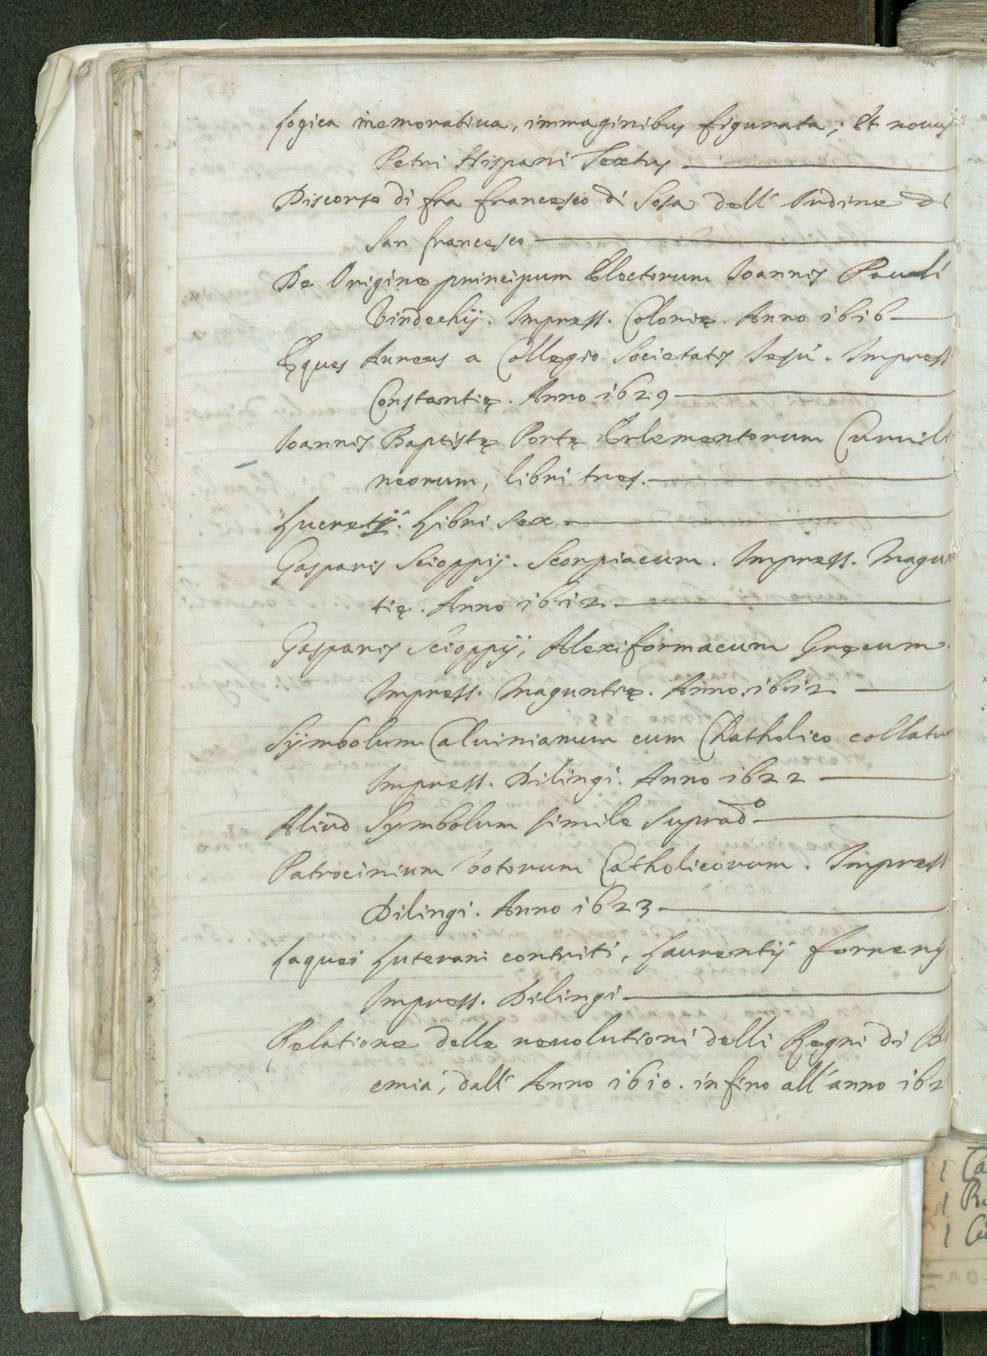 Logica memoratiua, immaginibus figurata; et nouus
Petri Hispani Textus
Discorso di fra francesco di Sosa dell' Ordine di
San francesco
De Origine principum Electorum Ioannis Pauli
Vindechij. Impress. Colonię. Anno 1616
Eques Aureus a Collegio Societatis Iesu. Impress
Constantię. Anno 1629
Ioannis Baptistę Portę Erlementorum Curuili
neorum, libri tres.
Lucretij. Libri sex.
Gasparis Scioppij. Scorpiacum. Impress. Magun
tię. Anno 1612
Gasparis Scioppij, Alexiformacum Gręcum.
Impress. Maguntię. Anno. 1612
Symbolum Caluinianum cum Chatholico collatu
Impress. Dilingi. Anno 1622
Aliud Symbolum simile suprad.o
Patrocinium votorum Catholicorum. Impress
Dilingi. Anno 1623
Laquei Luterani contriti, Laurentij forrerij
Impress. Dilingi
Relatione delle reuolutioni delli Regni di B
emia, dall' Anno 1610. infino all' anno 162
1
1
1